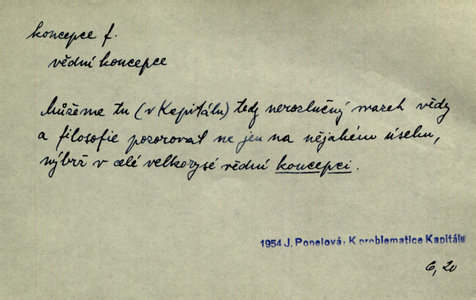 koncepce f.
vědní koncepce
Můžeme tu (v Kapitálu) tedy nerozlučný svazek vědy
a filosofie pozorovat ne jen na nějakém úseku,
nýbrž v celé velkorysé vědní koncepci.
1954 J. Ponelová: K problematice Kapitálu
6, 20